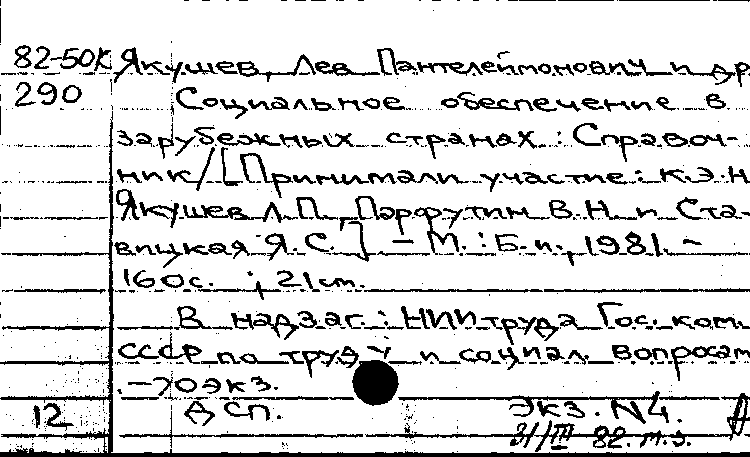 82-50К Якушев, Лев Пантелеймонович и др
290 Социальное обеспечение в
зарубежных странах : Справоч-
ник / [Принимали участие: к.э.н
Якушев Л.П., Парфутин В.Н. и Ста-
вицкая Я.С.] - М. : Б.и., 1981. -
160с. ; 21см.
В надзаг.: НИИ труда Гос. ком.
СССР по труду и социал. вопросам
. - 70 экз.
12 ДСП. Экз. N4.
31/III 82. т.з.